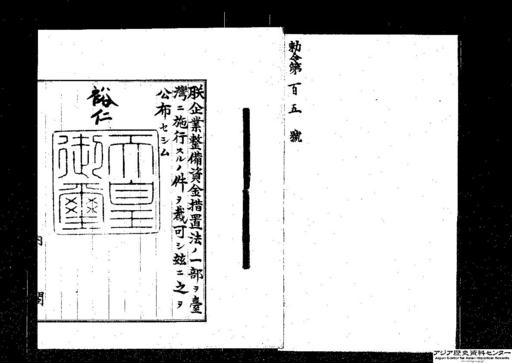 勅令第百五號
朕企業整備資金措置法ノ一部ヲ臺
灣ニ施行スルノ件ヲ裁可シ玆ニ之ヲ
公布セシム
裕仁
天皇
御璽
内閣
アジア歴史資料センター
Japan Center for Asian Historical Records